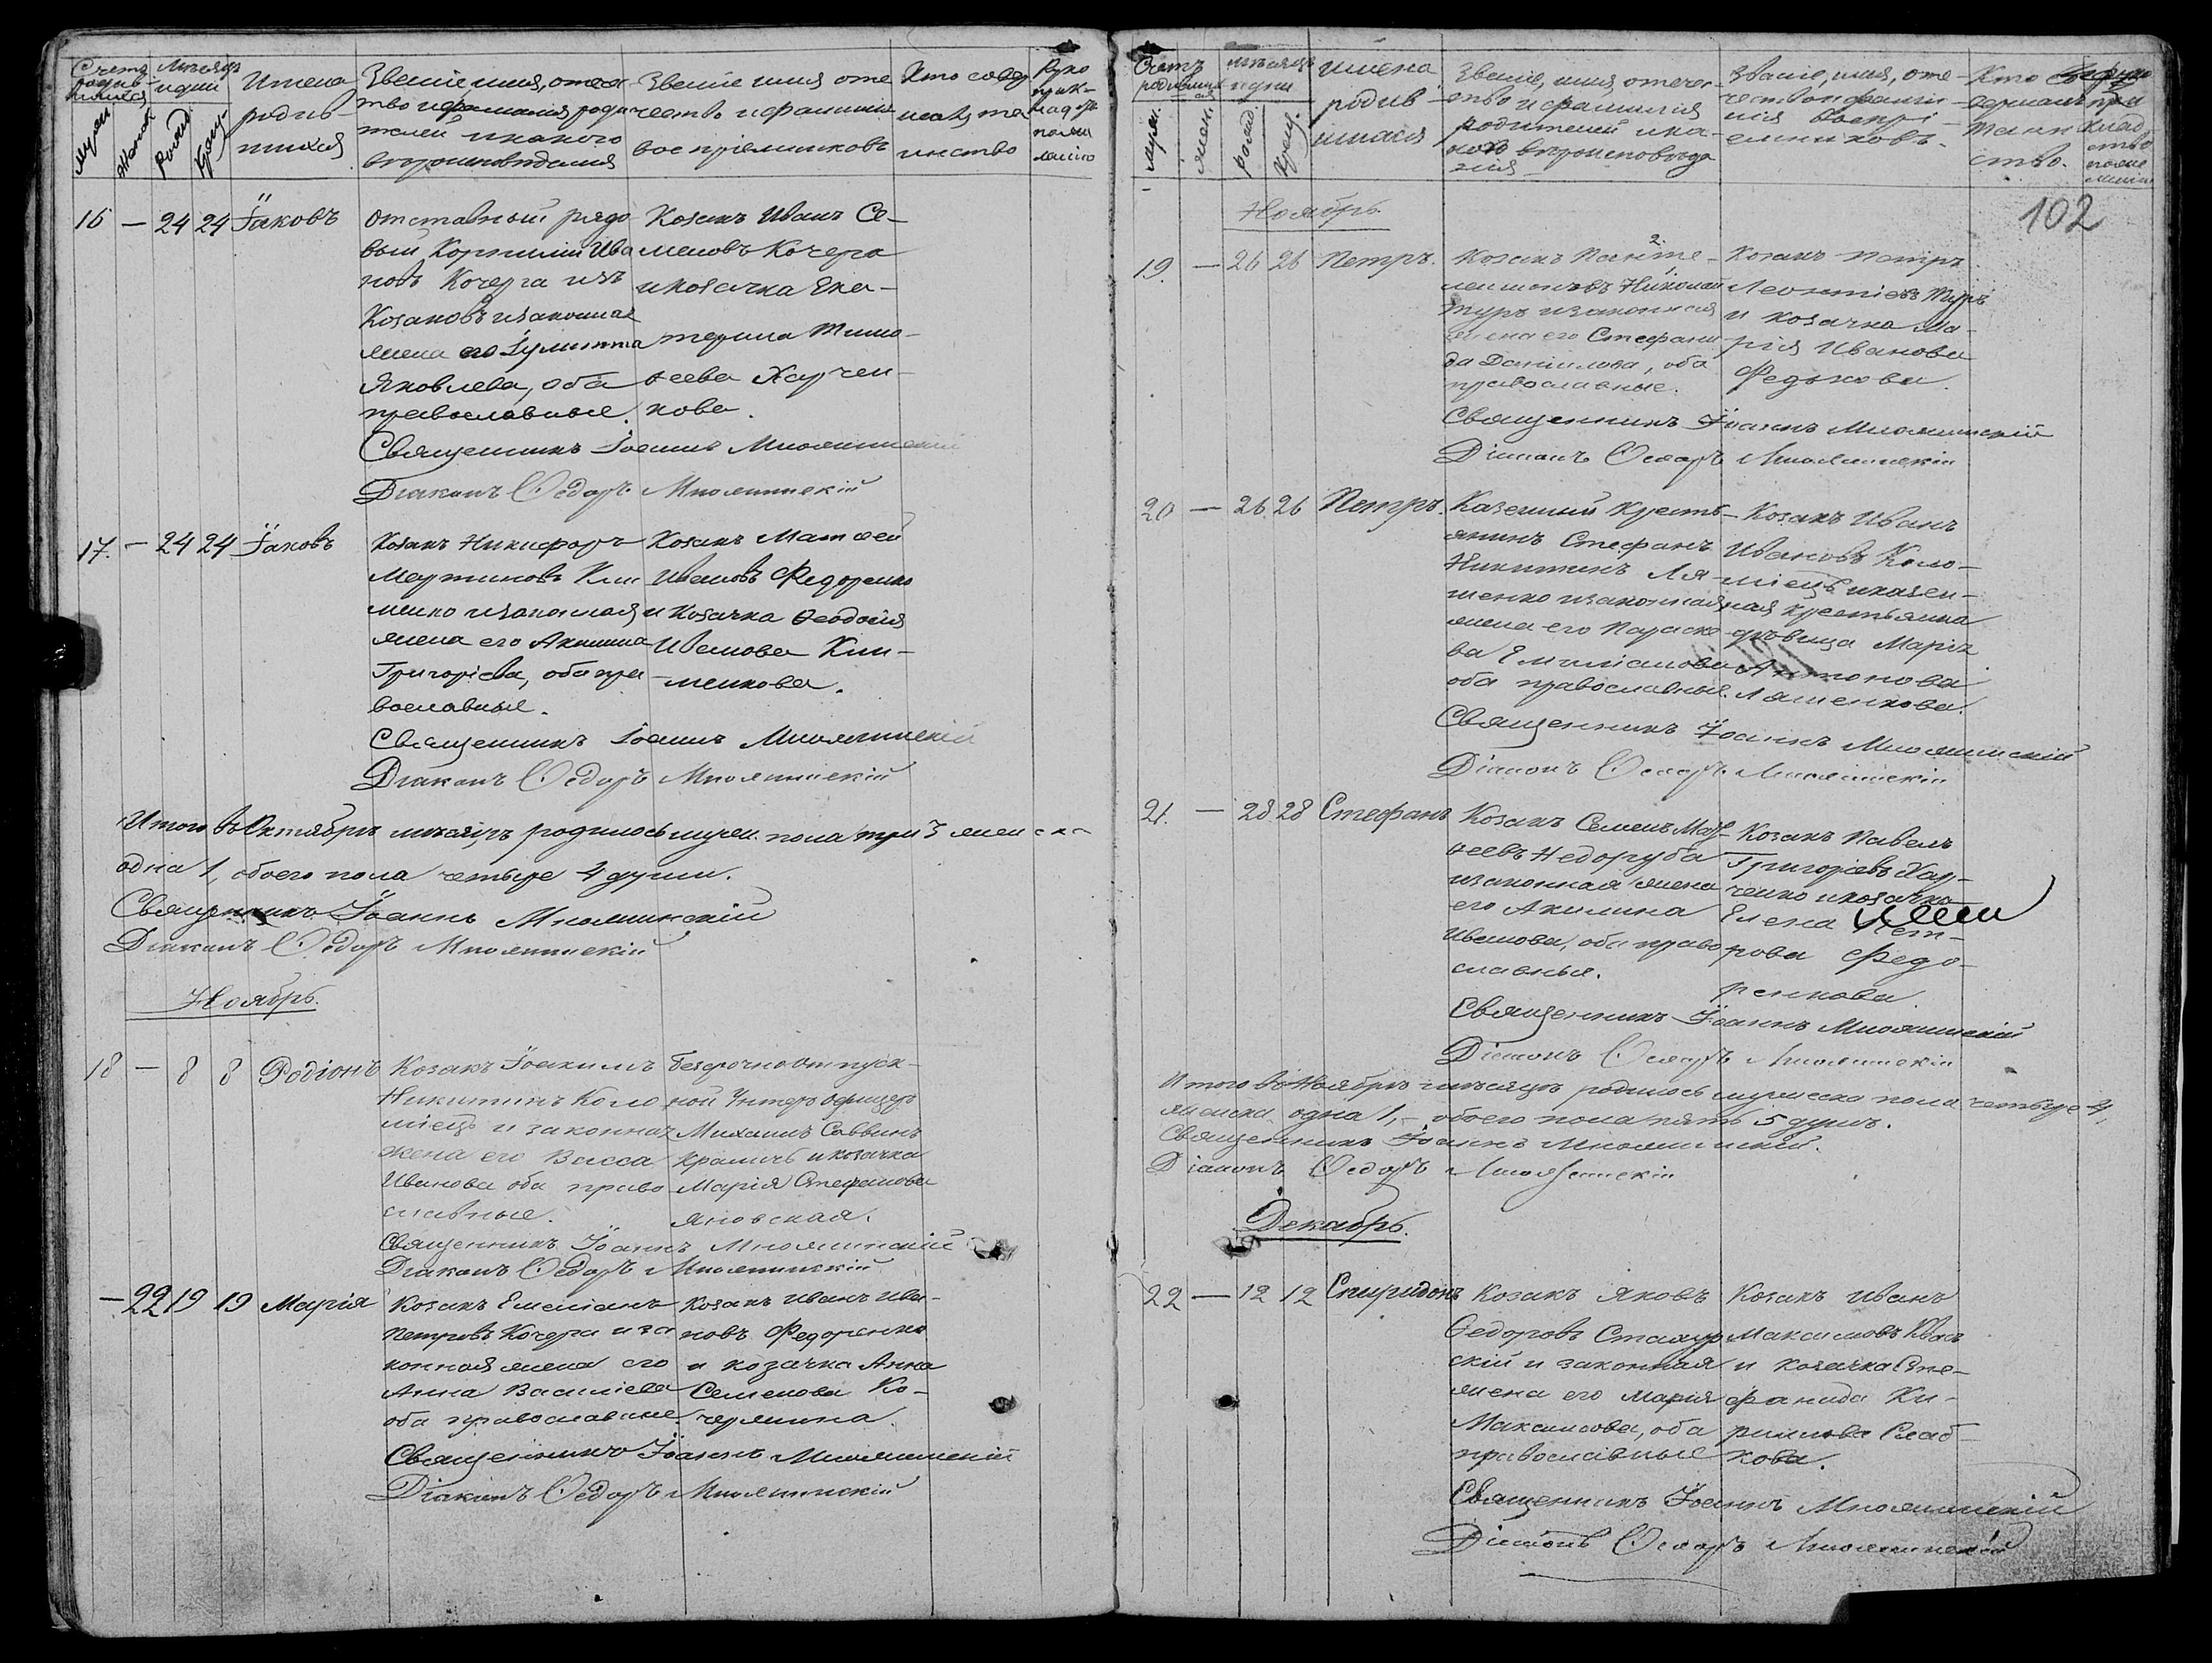 Счетъ родив-шихся
Мѣсяцъ и дни
Имена родив-шихся
Званіе имя, отече-
ство и фамилія роди-
телей и какого
вѣроисповѣданія
Званіе имя оте
чество и фамилія
воспріемниковъ
Кто совер
шалъ та
инство
Руко
прик-
ладство
Муж.
Женск.
Рожд.
Крещ.
16 — 24 24 Іаковъ
Отставный рядо
вый Корнилій Ива
новъ Кочерга изъ
Козаковъ и законная
жена его Іулитта
Яковлева, оба
православные.
Козакъ Иванъ Се-
меновъ Кочерга
и козачка Ека-
терина Тимо-
ѳеева Харчен-
кова.
Священникъ Іоаннъ
Діаконъ Ѳедоръ
17. — 24 24 Іаковъ
Козакъ Никифоръ
Мартиновъ Кли
менко и законная
жена его Акилина
Григоріева, оба пра-
вославные.
Козакъ Матѳей
Ивановъ Федоренко
и Козачка Ѳеодосія
Иванова Кли-
менкова.
Священникъ Іоаннъ
Діаконъ Ѳедоръ
Итого въ Октябрѣ мѣсяцѣ родилось мужеск. пола три 3 женска
одна 1, обоего пола четыре 4 души.
Священникъ Іоаннъ
Діаконъ Ѳедоръ
Ноябрь.
18 — 8 8 Родіонъ
Козакъ Іоакимъ
Никитинъ Коло
міецъ и законная
жена его Васса
Иванова оба право
славные.
Безсрочноотпуск-
ной Унтеръ офицеръ
Михаилъ Саввинъ
и козачка
Марія Стефанова
Яновская.
Священникъ Іоаннъ
Діаконъ Ѳедоръ
— 22 19 19 Марія
Козакъ Емеліанъ
Петровъ Кочерга и за
конная жена его
Анна Василіева
оба православные.
Козакъ Иванъ Ива-
новъ Федоренко
и козачка Анна
Семенова Ко-
чержина.
Священникъ Іоаннъ
Діаконъ Ѳедоръ
Счетъ родившихся
Мѣсяцъ и дни
Имена
родив
шихся
Званіе, имя, отече-
ство и фамилія
родителей и ка-
кого вѣроисповѣда
нія
Званіе, имя, оте-
чество и фами-
лія воспрі-
емниковъ.
Кто со-
вершалъ
таин
ство.
муж.
жен.
рожд.
крещ.
102
Ноябрь
19. — 26 26 Петръ.
Козакъ Панте-
леимоновъ Николай
Туръ и законная
жена его Стефани
да Даніилова, оба
православные.
Козакъ Петръ
Леонтіевъ Туръ
и козачка Ма-
рія Иванова
Федькова.
Священникъ Іоаннъ
Діаконъ Ѳедоръ
20 — 26 26 Петръ.
Казенный кресть-
янинъ Стефанъ
Никитинъ Ля-
шенко и законная
жена его Параске
ва Емиліанова
оба православные.
Козакъ Иванъ
Ивановъ Коло-
міецъ и казен-
ная крестьянка
дѣвица Марія
Антонова
Ляшенкова.
Священникъ Іоаннъ
Діаконъ Ѳедоръ
21. — 28 28 Стефанъ
Козакъ Семенъ Мат-
ѳеевъ Недоруба
и законная жена
его Акилина
Иванова, оба право
славные.
Козакъ Павелъ
Григоріевъ Хар-
ченко и козачка
Елена Пет-
рова Федо-
ренкова.
Священникъ Іоаннъ
Діаконъ Ѳедоръ
Итого въ Ноябрѣ мѣсяцѣ родилось мужеска пола четыре 4,
женска одна 1, — обоего пола пять 5 душъ.
Священникъ Іоаннъ
Діаконъ Ѳедоръ
Декабрь.
22 — 12 12 Спиридонъ
Козакъ Яковъ
Ѳедоровъ
скій и законная
жена его Марія
Максимова, оба
православные
Козакъ Иванъ
Максимовъ
и козачка Сте-
фанида Ки-
рилова Слаб-
кова.
Священникъ Іоаннъ
Діаконъ Ѳедоръ